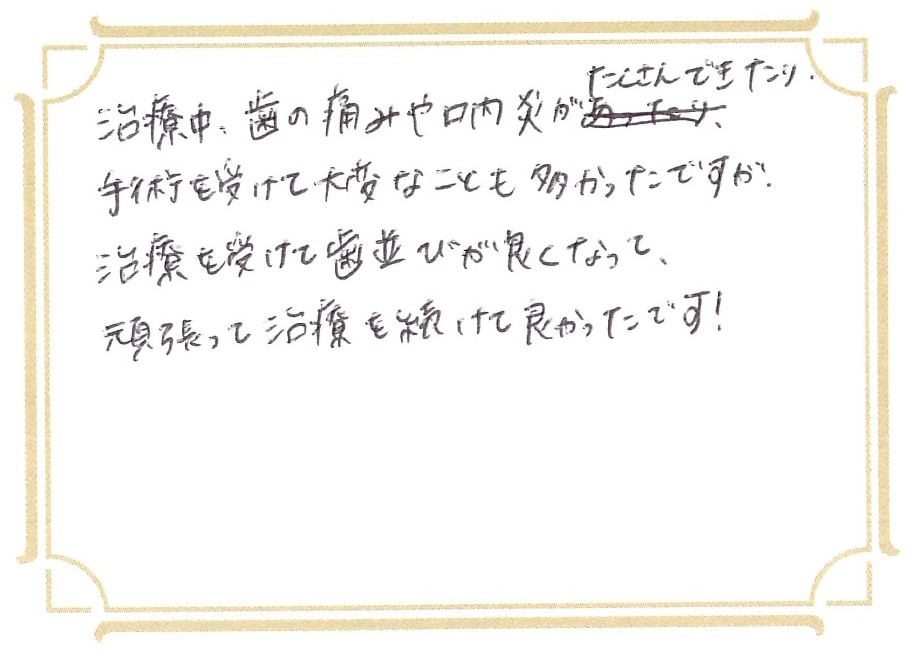 治療中、歯の痛みや口内炎がたくさんできたり、
手術を受けて大変なことも多かったですが、
治療を受けて歯並びが良くなって、
頑張って治療を続けて良かったです!